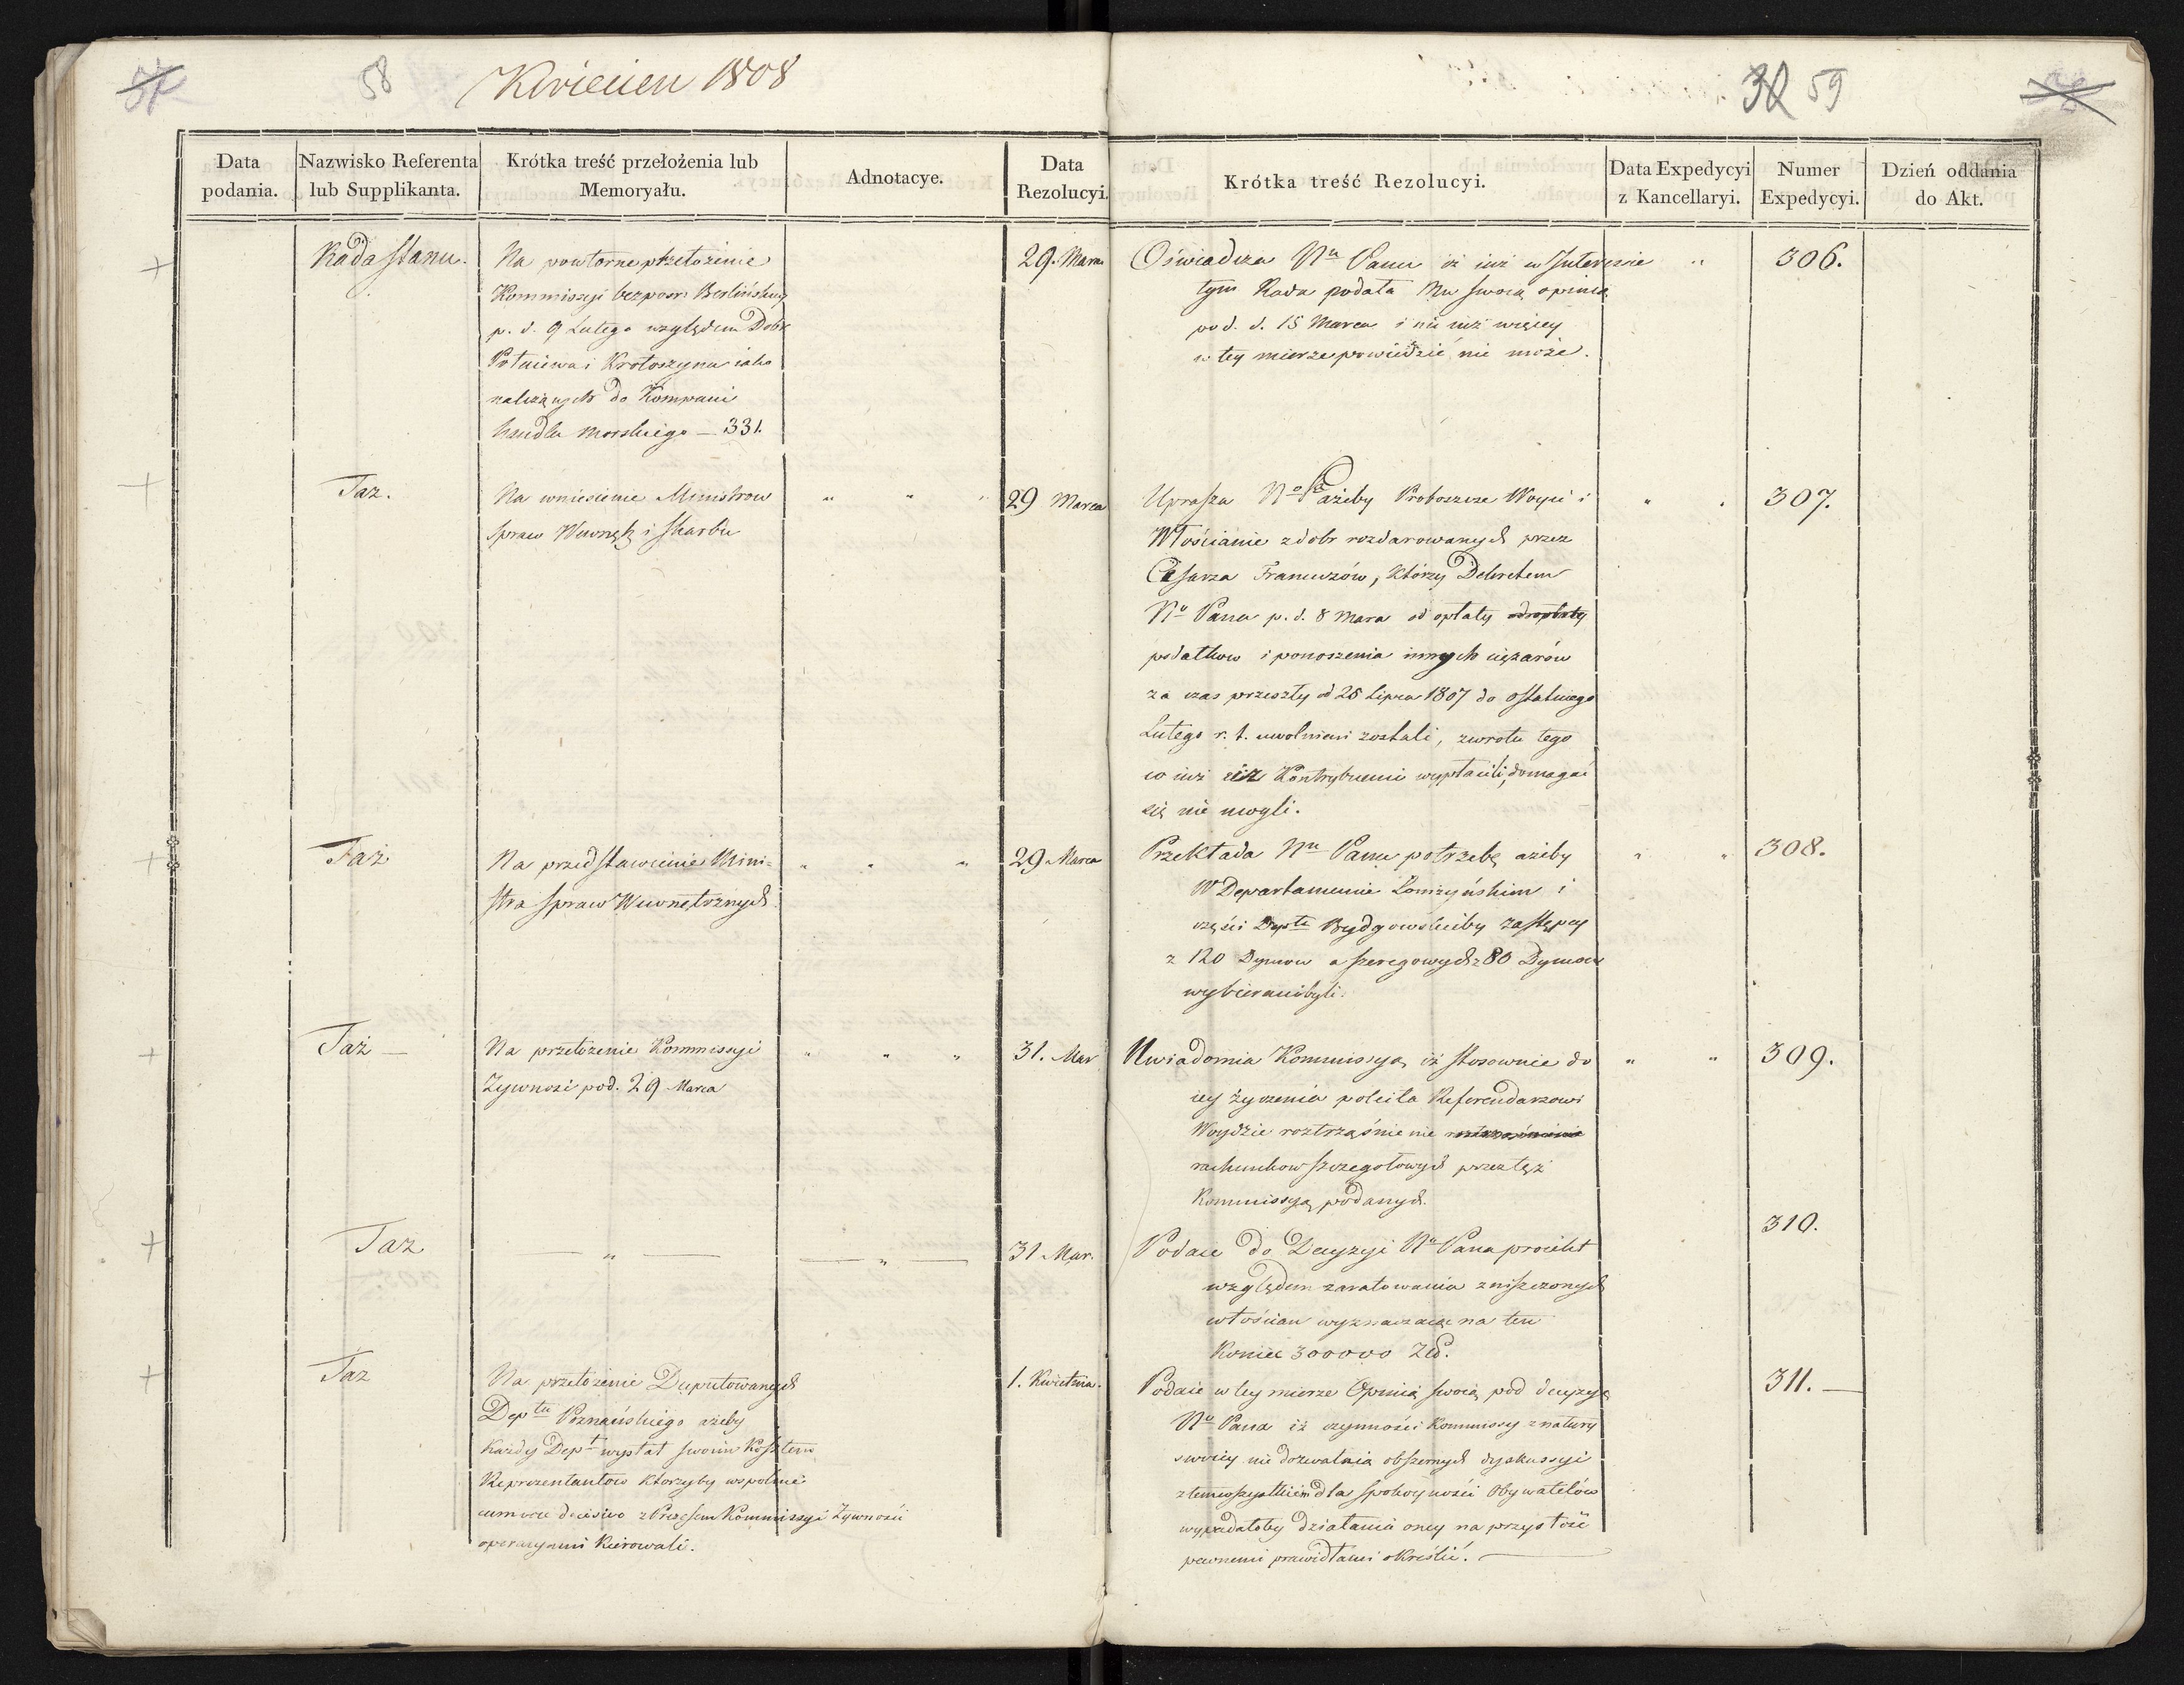 58
Kwiecien 1808
Data podania.
Nazwisko Referenta lub Supplikanta.
Krótka treść przełożenia lub Memoryału.
Adnotacye.
Data Rezolucyi.
Rada Stanu.
Na powtorne przełożenie
Kommissyi bezposr: Berlińskiey
p. d. 9 Lutego względem Dobr
i Krotoszyna iako
należących do Kompanii
handlu morskiego — 331.
29. Marca
Taz.
Na wniesienie Ministrow
Spraw Wewnętz i Skarbu
" " "
29 Marca
Taż
Na przedstawienie Mini=
stra Spraw Wewnętrznych.
" " "
29 Marca
Taż —
Na przełożenie Kommissyi
Zywnosci pod. 29 Marca
" " "
31. Mar
Taz
— " —
— " —
31 Mar.
Taz
Na przełożenie Deputowanych
Deptu Poznańskiego ażeby
Każdy Dept wysłał swoim Kosztem
Reprezentantow ktorzyby wspolnie
cum voce decisivo z Prezesem Kommissyi Zywnosci
operacyami kierowali.
1. Kwietnia.
59
Krótka treść Rezolucyi.
Data Expedycyi z Kancellaryi.
Numer Expedycyi.
Dzień oddania do Akt.
Oświadcza Nu Panu iż iuż w Interessie
tym Rada podała Mu swoią opinią
pod. d. 15 Marca i nic iuż więcey
w tey mierze powiedzić nie może.
"
306.
Uprasza No Pa ażeby Proboszcze Woyci i
Włościanie z dobr rozdarowanych przez
Cesarza Francuzów, którzy Dekretem
No Pana p. d. 8 Mara od opłaty od opłaty
podatkow i ponoszenia innych ciężarów
za czas przeszły od 25 Lipca 1807 do ostatniego
Lutego r. t. uwolnieni zostali, zwrotu tego
co iuż Kontrybucii wypłacili, domagać
się nie mogli.
" "
307.
Przekłada Nu Panu potrzebę ażeby
W Departamencie Łomzyńskim i
części Deptu Bydgowskiby zastępcy
z 120 Dymow a szeregowych z 80 Dymow
wybierani byli.
" "
308.
Uwiadomia Kommissyą iż stosownie do
iey życzenia poleciła Referendarzowi
Woydzie roztrząśnie nie
rachunkow szczegołowych przez tęż
Kommissyą podanych.
" "
309.
Podaie do Decyzyi No Pana proiekt
względem zaratowania zniszczonych
włościan wyznaczaiąc na ten
Koniec 300000 Zł.
310.
Podaie w tey mierze Opinią swoią pod decyzyą
No Pana iż czynności Kommissy z natury
swoiey nie dozwalaią obszernych dyskussyi
z temwszystkiem dla spokoyności Obywatelów
wypadałoby działania oney na przyszłość
pewnemi prawidłami określić. —
311. —